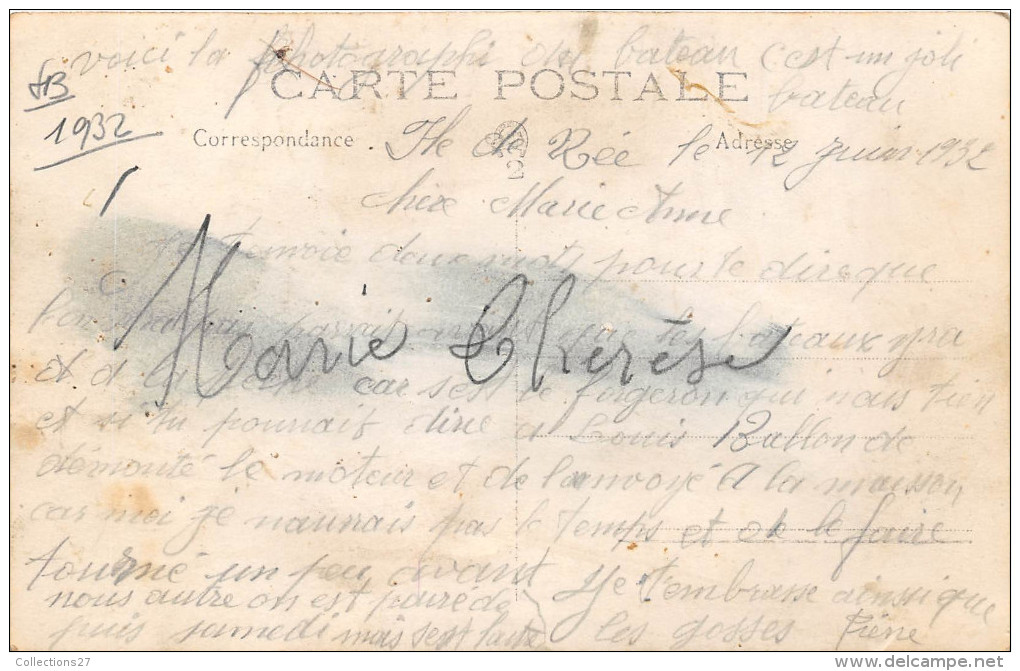 voici la photographi du bateau c'est un joli
bateau
CARTE POSTALE
FB
1932
Correspondance
Adresse
2
Ile de Rée le 12 Juin 1932
chère Marie Anne
je t'envoie deux mots pour te dire que
Marie Thérèse
que les bateaux
et car sest le forgeron qui nous tien
et si tu pouvais dire a Louis Ballon de
démonté le moteur et de l'envoyé a la maison
car moi je naurais pas le temps et de le faire
tourné un peu avant
Je t'embrasse ainsi que
nous autre on est paré de
les gosses Pierre
puis samedi mais sest
Collections27
delcampe.net